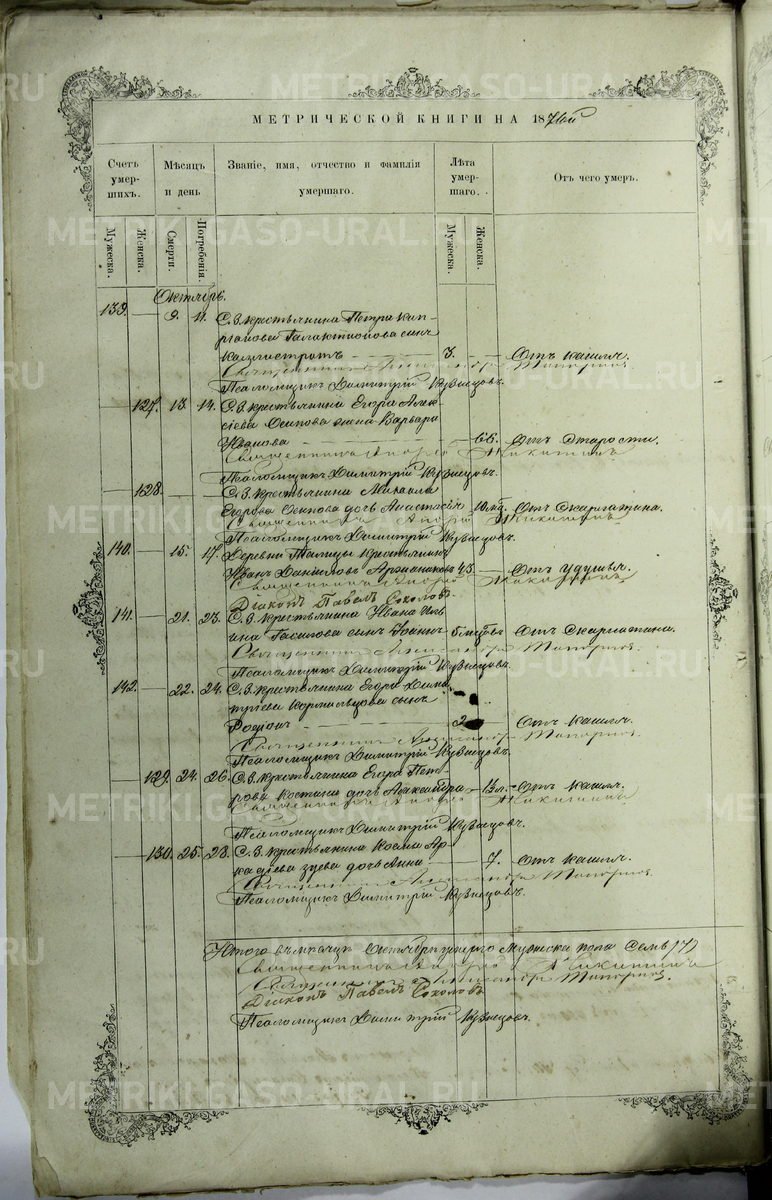 МЕТРИЧЕСКОЙ КНИГИ НА 187
Счетъ умер- шихъ.
Мѣсяцъ и день
Званіе, имя, отчество и фамилія умершаго.
Лѣта умер- шаго.
Отъ чего умеръ.
Мужеска.
Женска.
Смерти.
Погребенія.
Мужеска.
Женска.
Октябрь.
139. — 9. 11. С. З. крестьянина Петра Кип-
ріанова Галактіонова сынъ
Каллистратъ — 3. — Отъ кашля.
Священникъ Топорковъ
Псаломщикъ Димитрій Кузнецовъ.
— 127. 13 14. С. З. крестьянина Егора Алек-
сіева Осипова жена Варвара
Иванова — 66. Отъ старости.
Священникъ Андрей Никитинъ
Псаломщикъ Димитрій Кузнецовъ.
— 128. — — С. З. крестьянина Михаила
Егорова Осипова дочь Анастасія Отъ скарлатина.
Священникъ Андрей Никитинъ
Псаломщикъ Димитрій Кузнецовъ.
140. — 15. 17. Деревни Талицы крестьянинъ
Иванъ Даніиловъ 45. — Отъ удушья.
Священникъ Андрей Никитинъ
Діаконъ Павелъ Соколовъ.
141. — 21. 23. С. З. крестьянина Ивана Иль-
ина сынъ Іоаннъ 5 мцовъ Отъ скарлатина.
Священникъ Александръ
Псаломщикъ Димитрій Кузнецовъ.
142. — 22. 24. С. З. крестьянина Егора Дими-
тріева Кормильцова сынъ
Родіонъ — 2 Отъ кашля.
Священникъ Александръ
Псаломщикъ Димитрій Кузнецовъ.
— 129. 24. 26. С. З. крестьянина Егора Пет-
рова Костина дочь Александра Отъ кашля.
Священникъ Андрей Никитинъ
Псаломщикъ Димитрій Кузнецовъ.
— 130. 25. 28. С. З. крестьянина Космы Ар-
кадіева Зуева дочь Анна — 7. Отъ кашля.
Священникъ Александръ
Псаломщикъ Димитрій Кузнецовъ.
Итого въ мѣсяцѣ Октябрѣ умерло мужеска пола семь /7/
Священникъ Андрей Никитинъ
Священникъ Александръ
Діаконъ Павелъ Соколовъ
Псаломщикъ Димитрій Кузнецовъ.
METRIKI.GASO-URAL.RU